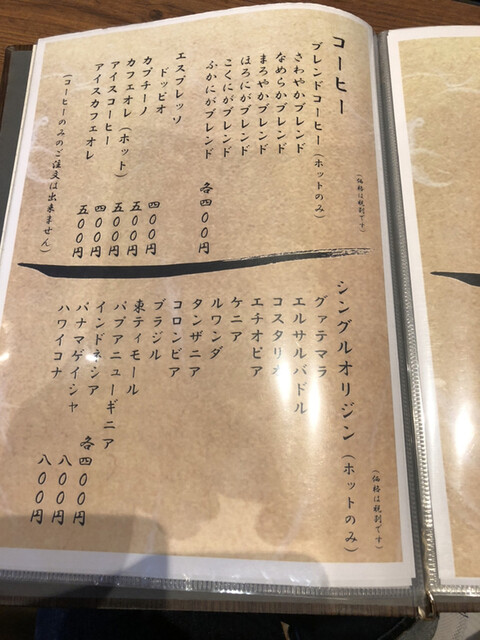 コーヒー
(価格は税別です)
ブレンドコーヒー(ホットのみ)
さわやかブレンド
なめらかブレンド
まろやかブレンド
ほろにがブレンド
こくにがブレンド
ふかにがブレンド 各四〇〇円
エスプレッソ
ドッピオ 四〇〇円
カプチーノ 五〇〇円
カフェオレ(ホット) 五〇〇円
アイスコーヒー 四〇〇円
アイスカフェオレ 五〇〇円
(コーヒーのみのご注文は出来ません)
シングルオリジン(ホットのみ)
(価格は税別です)
グァテマラ
エルサルバドル
コスタリカ
エチオピア
ケニア
ルワンダ
タンザニア
コロンビア
ブラジル
東ティモール
パプアニューギニア
インドネシア 各四〇〇円
パナマゲイシャ 八〇〇円
ハワイコナ 八〇〇円